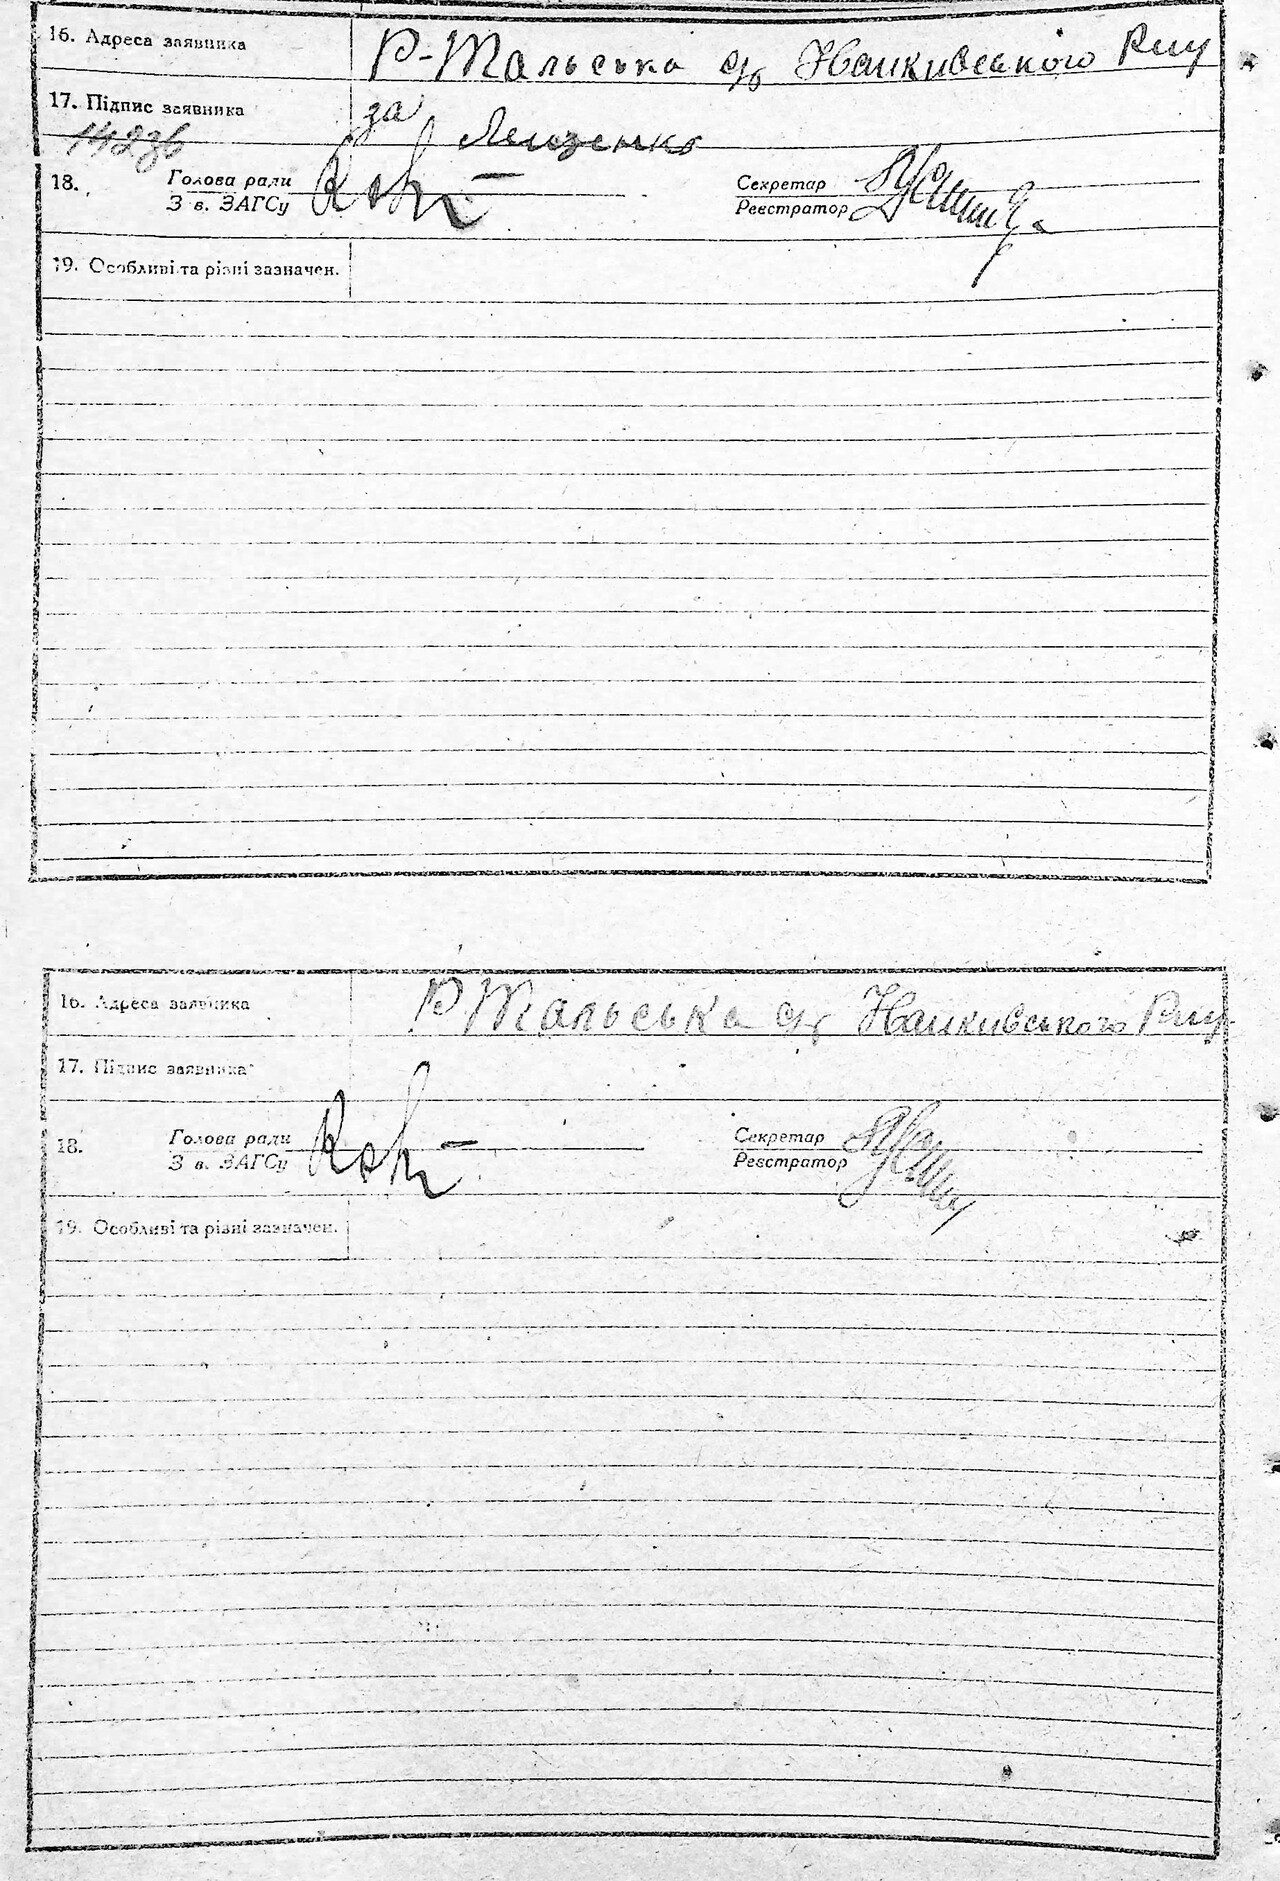 16. Адреса заявника Р-Тальська с/р Іванківського Р-ну
17. Підпис заявника за Лещенко
18. Голова ради Секретар
Зав. ЗАГСу Реєстратор
19. Особливі та різні зазначен.
16. Адреса заявника Р Тальська с/р Іванківського Р-ну
17. Підпис заявника
18. Голова ради Секретар
Зав. ЗАГСу Реєстратор
19. Особливі та різні зазначен.